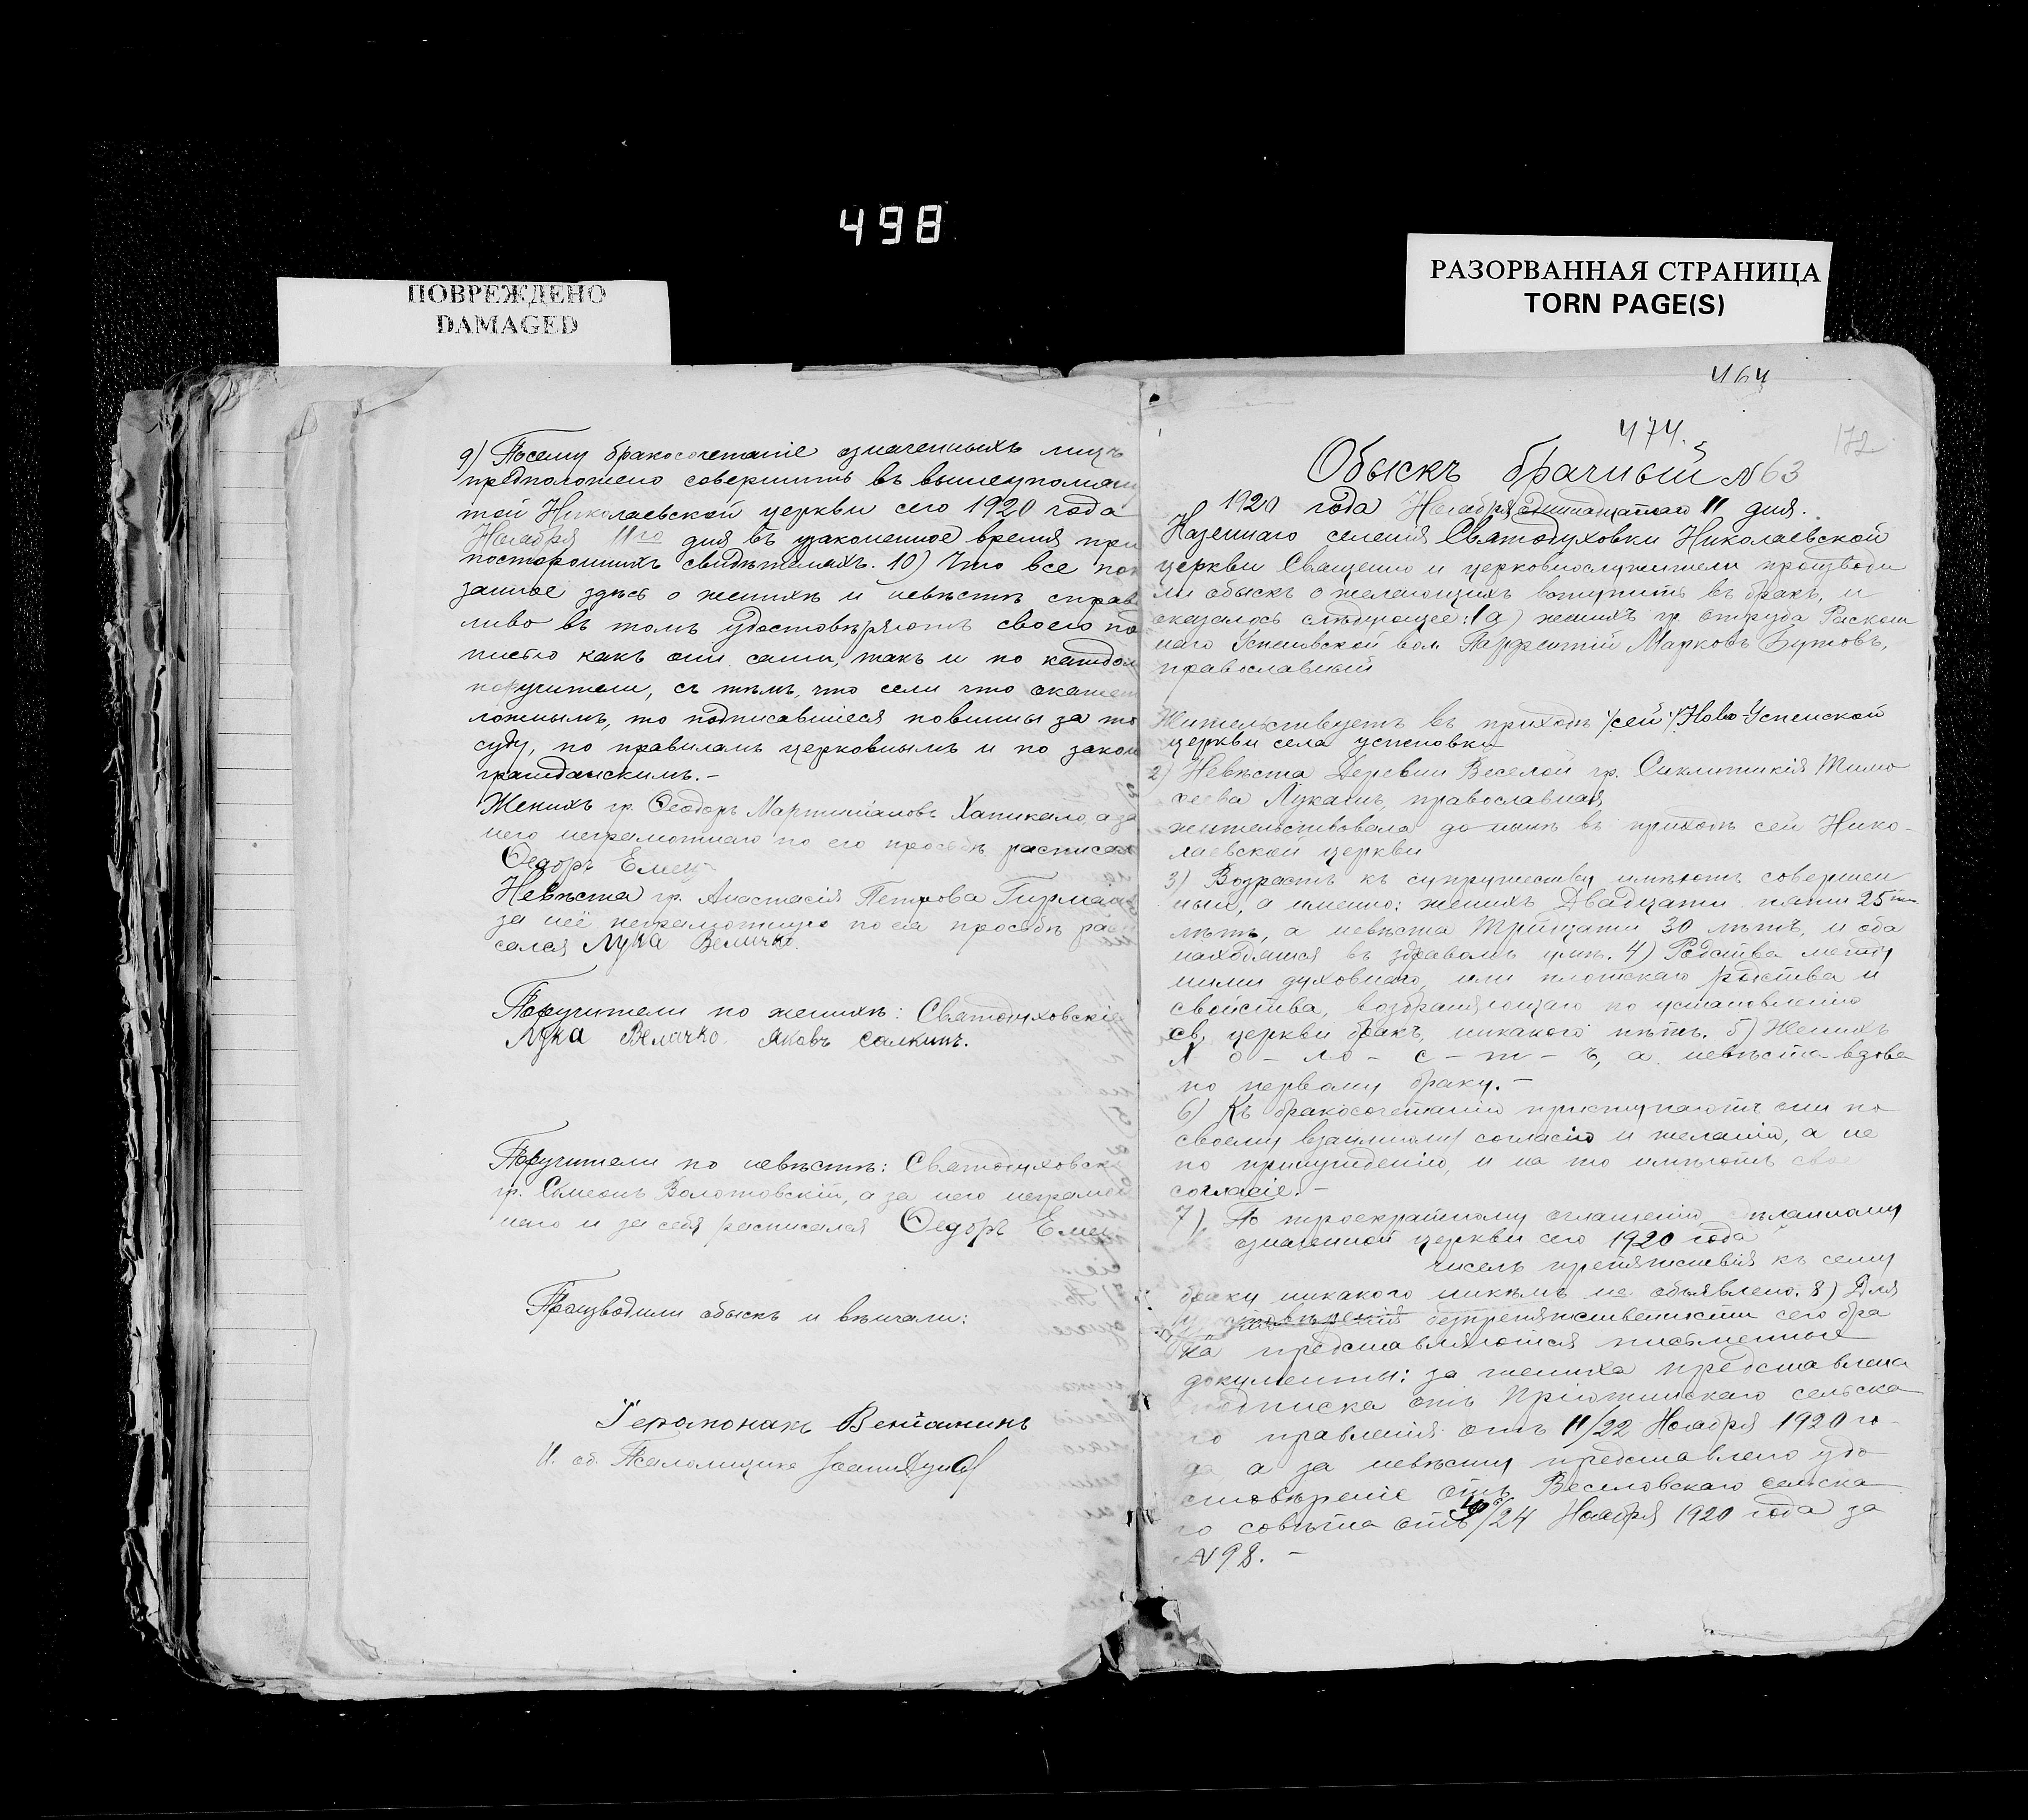 498
ПОВРЕЖДЕНО
DAMAGED
РАЗОРВАННАЯ СТРАНИЦА
TORN PAGE(S)
9) Посему бракосочетаніе означенныхъ лицъ
предположено совершить въ вышеупомян
той Николаевской церкви сего 1920 года
Ноября 11го дня въ узаконенное время при
постороннихъ свидѣтеляхъ. 10) Что все пок
занное здѣсь о женихѣ и невѣстѣ справ
ливо въ томъ удостовѣряютъ своею по
писью какъ они сами, такъ и по каждом
поручители, съ тѣмъ, что если что окажет
ложнымъ, то подписавшіеся повинны за то
суду, по правиламъ церковнымъ и по закон
гражданскимъ.-
Женихъ гр. Ѳеодоръ Мартиніановъ Хапикало, а за
него неграмотнаго по его просьбѣ расписа
Ѳедоръ Емец
Невѣста гр. Анастасія Петрова
за неё неграмотную по ея просьбѣ рас
сался Лука Величко
Поручители по женихѣ: Святодуховскіе
Лука Величко Яковъ Салкинъ.
Поручители по невѣстѣ: Святодуховск
гр. Симеонъ Волотовскій, а за него неграмот
наго и за себя расписался Ѳедоръ Емец
Производили обыскъ и вѣнчали:
Іеромонахъ Веніаминъ
И. об. Псаломщика
464
474.
172
Обыскъ брачный № 63
1920 года Ноября одиннадцатаго 11 дня.
Казеннаго селенія Святодуховки Николаевской
церкви Священно и церковнослужители производи
ли обыскъ о желающихъ вступить въ бракъ, и
оказалось слѣдующее: 1а) женихъ гр. отруба Раскош
наго Успеновской вол. Парфентій Марковъ Бутовъ,
православный
Жительствуетъ въ приходѣ /сей/ Ново-Успенской
церкви села Успеновки
2) Невѣста Деревни Веселой гр. Синклитикія Тимо
ѳеева Лукашъ, православная,
жительствовала до нынѣ въ приходѣ сей Нико-
лаевской церкви
3) Возрастъ къ супружеству имѣютъ совершен
ный, а именно: женихъ Двадцати пяти 25ти
лѣтъ, а невѣста Тридцати 30 лѣтъ, и оба
находятся въ здравомъ умѣ. 4) Родства между
ними духовнаго, или плотскаго родства и
свойства, возбраняющаго по установленію
св. церкви бракъ, никакого нѣтъ. 5) Женихъ
Х о - ло - с - т - ъ, а невѣста вдова
по первому браку.-
6) Къ бракосочетанію приступаютъ они по
своему взаимному согласію и желанію, а не
по принужденію, и на то имѣютъ сво
согласіе.-
7) По троекратному оглашенію ѣланному
означенной церкви сего 1920 года
числъ препятствія къ сему
браку никакого никѣмъ не объявлено. 8) Для
удостовѣренія безпрепятственности сего бра
ка представляются письменные
документы: за жениха представлена
подписка отъ Пріютинскаго сельска
го правленія отъ 11/22 Ноября 1920 го-
да а за невѣсту представлено удо
стовѣреніе отъ Веселовскаго сельска
го совѣта отъ /24 Ноября 1920 года за
№ 98.-